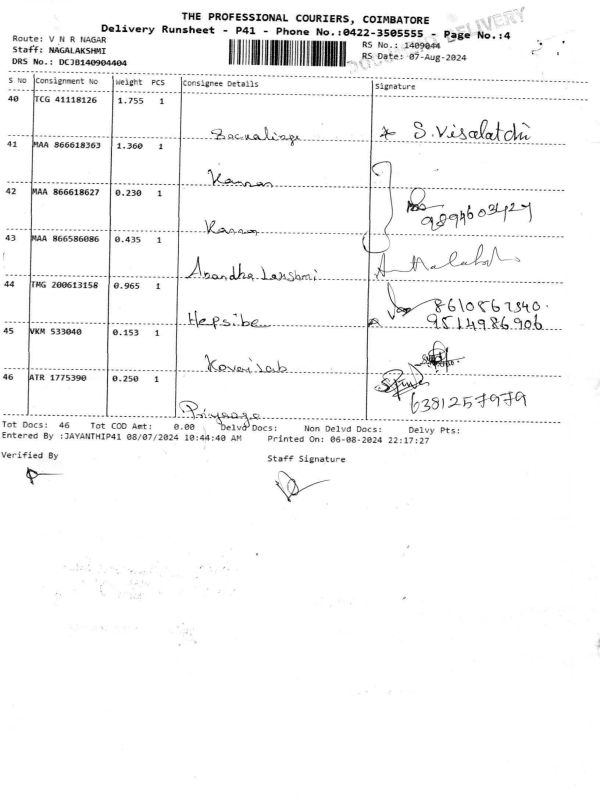 THE PROFESSIONAL COURIERS, COIMBATORE
Delivery Runsheet - P41 - Phone No.:0422-3505555 - Page No.:4
DELIVERY
Route: V N R NAGAR
RS No.: 1409044
Staff: NAGALAKSHMI
RS Date: 07-Aug-2024
DRS No.: DCJB140904404
S No Consignment No Weight PCS Consignee Details Signature
40 TCG 41118126 1.755 1
S. Visalatchi
41 MAA 866618363 1.360 1
Kannan
42 MAA 866618627 0.230 1
Kannan
43 MAA 866586086 0.435 1
Anandha Lakshmi
44 TMG 200613158 0.965 1
8610862340.
Hepsibe 9514986906
45 VKM 533040 0.153 1
Kovai Lab
46 ATR 1775390 0.250 1
6381257979
Tot Docs: 46 Tot COD Amt: 0.00 Delvd Docs: Non Delvd Docs: Delvy Pts:
Entered By :JAYANTHIP41 08/07/2024 10:44:40 AM Printed On: 06-08-2024 22:17:27
Verified By Staff Signature